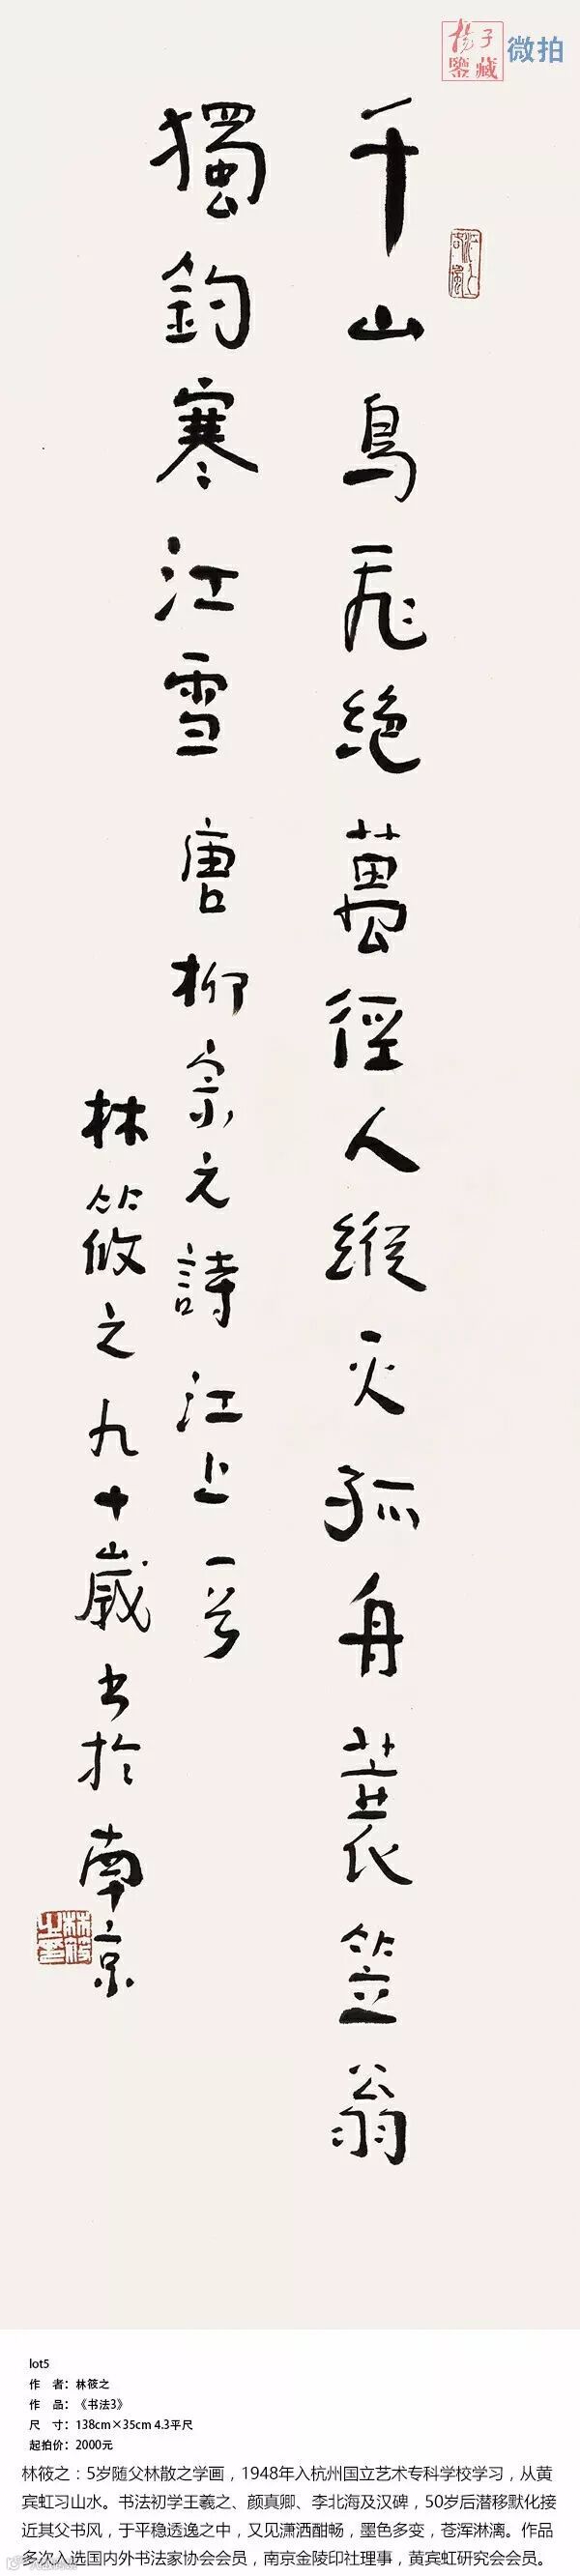 揚子
鑒藏
微拍
千山鳥飛絕萬徑人縱灭孤舟蓑笠翁
獨釣寒江雪 唐柳宗元詩 江上一兮
林筱之九十歲书於南京
林筱
之
lot5
作 者：林筱之
作 品：《书法3》
尺 寸：138cm×35cm 4.3平尺
起拍价：2000元
林筱之：5岁随父林散之学画，1948年入杭州国立艺术专科学校学习，从黄
宾虹习山水。书法初学王羲之、颜真卿、李北海及汉碑，50岁后潜移默化接
近其父书风，于平稳透逸之中，又见潇洒酣畅，墨色多变，苍浑淋漓。作品
多次入选国内外书法家协会会员，南京金陵印社理事，黄宾虹研究会会员。